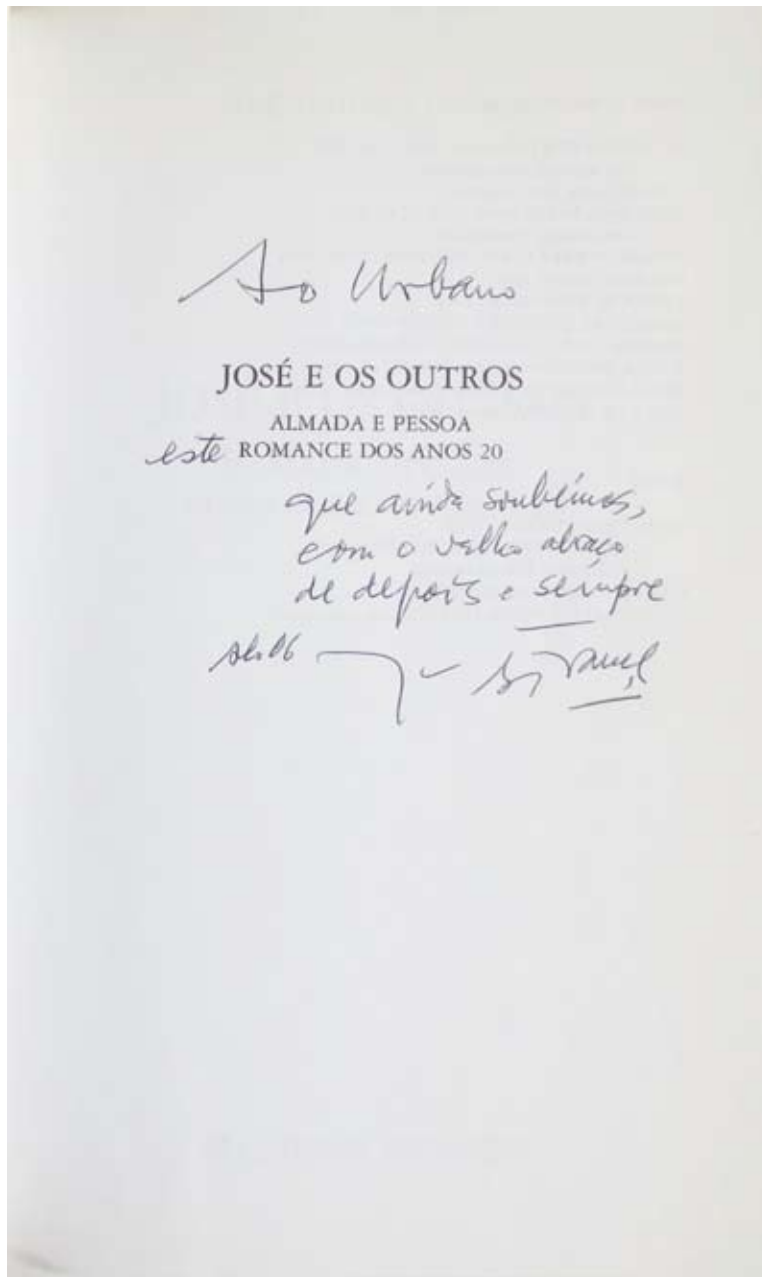 Ao Urbano
JOSÉ E OS OUTROS
ALMADA E PESSOA
este ROMANCE DOS ANOS 20
que ainda soubémos,
com o velho abraço
de depois e sempre
França